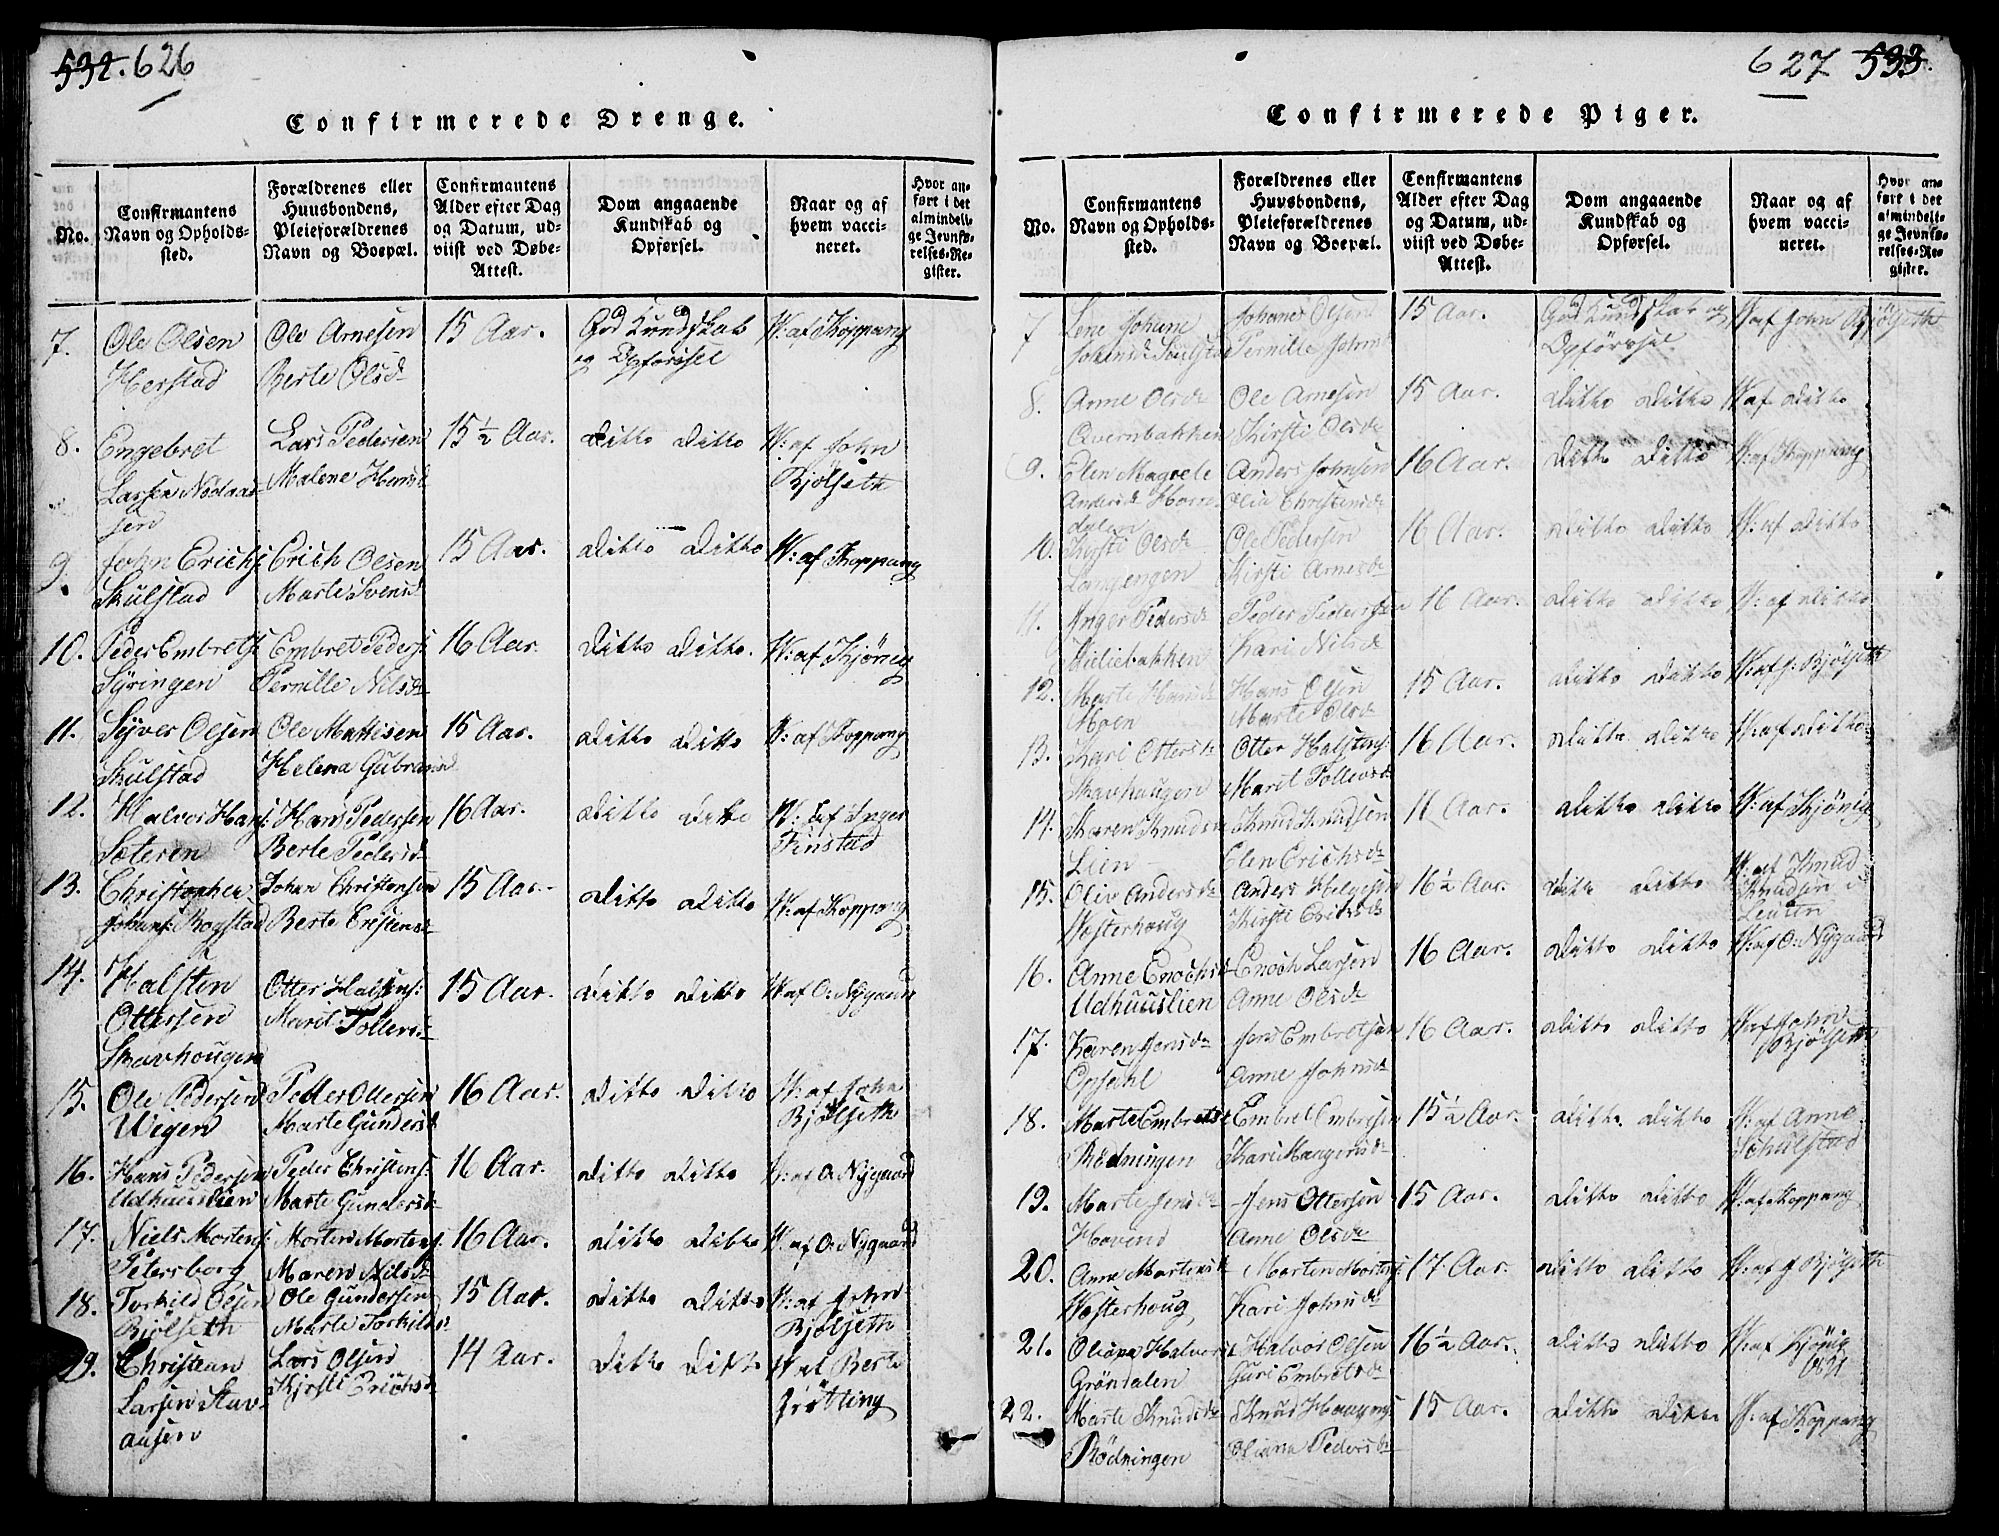 532. 626
Confirmerede Drenge.
No.
Confirmantens
Navn og Opholds-
sted.
Forældrenes eller
Huusbondens,
Pleieforældrenes
Navn og Boepæl.
Confirmantens
Alder efter Dag
og Datum, ud-
viist ved Døbe-
Attest.
Dom angaaende
Kundskab og
Opførsel.
Naar og af
hvem vacci-
neret.
Hvor an-
ført i det
almindeli-
ge Jevnfø-
relses-Re-
gister.
7.
Ole Olsen
Herstad
Ole Arnesen
Berte Olsd
15 Aar.
God Kundskab
og Opførsel
W: af Koppang
8.
Engebret
Larsen
Lars Pedersen
Malene Hansd
15½ Aar.
ditto ditto
W: af John
Bjölseth
9.
John Erichs:
Skulstad
Erich Olsen
Marte Svensd
15 Aar.
ditto ditto
W: af Koppang
10.
Peder Embrets:
Syringen
Embret Peders:
Pernille Nilsd
16 Aar.
ditto ditto.
W: af Kjönig
11.
Syver Olsen
Skulstad
Ole Mattisen
Helena
15 Aar.
ditto ditto
W: af Koppang
12.
Halvor Hans:
Sæteren
Hans Pedersen
Berte Pedersd
16 Aar.
ditto ditto
W: af Inger
Finstad
13.
Christopher
Johans: Bogstad
Johan Christensen
Berte
15 Aar.
ditto ditto
W: af Koppang
14.
Halsten
Ottersen
Skavhougen
Otter Halstens:
Marit Tollevsd
15 Aar.
ditto ditto
W: af O: Nygaard
15.
Ole Pedersen
Wigen
Petter Ottersen
Marte Gundersd
16 Aar.
ditto ditto
W: af John
Bjölseth
16.
Hans Pedersen
Udhuuslien
Peder Christens:
Marte Gundersd
16 Aar.
ditto ditto
W: af O: Nygaard
17.
Niels Mortens:
Petersborg
Morten Mortens:
Maren Nilsd
16 Aar.
ditto ditto
W: af O: Nygaard
18.
Torkild Olsen
Bjölseth
Ole Gundersen
Marte Torkildsd
15 Aar.
ditto ditto
W: af John
Bjölseth
19.
Christian
Larsen Stav-
aasen
Lars Olsen
Kjersti Erichsd
14 Aar.
ditto ditto
W af Berte
Grötting
627 533.
Confirmerede Piger.
No.
Confirmantens
Navn og Opholds-
sted.
Forældrenes eller
Huusbondens,
Pleieforældrenes
Navn og Boepæl.
Confirmantens
Alder efter Dag
og Datum, ud-
viist ved Døbe-
Attest.
Dom angaaende
Kundskab og
Opførsel.
Naar og af
hvem vacci-
neret.
Hvor an-
ført i det
almindeli-
ge Jevnfø-
relses-Re-
gister.
7
Lene Johane
Johansd Skulstad
Johanes Olsen
Pernille
15 Aar.
God Kundskab og
Opførsel.
W af John Bjölseth
8.
Anne Olsd
Qvernbakken
Ole Arnesen
Kirsti Olsd
15 Aar.
ditto ditto
W af ditto
9.
Elen Magrele
Andersd Horre-
dalen
Anders Johnsen
Olia Christensd
16 Aar.
ditto ditto
W: af Koppang
10.
Kirsti Olsd
Langengen
Ole Pedersen
Kirsti Arnesd
16 Aar.
ditto ditto
W: af ditto
11.
Inger Pedersd
Liliebakken
Peder Pedersen
Kari Nilsd
16 Aar.
ditto ditto
W: af ditto
12.
Marte Hansd
Moen
Hans Olsen
Marte Olsd
15 Aar.
ditto ditto
W: af J: Bjölseth
13.
Kari Ottersd
Skavhaugen
Otter Halstens:
Marit Tollevsd
16 Aar.
ditto ditto
W: af ditto
14.
Karen Knudsd
Lien
Knud Knudsen
Elen Erichsd
16 Aar.
ditto ditto
W: af Kjönig
15.
Oliv Andersd
Westerhoug
Anders Helgesen
Kirsti Erichsd
16½ Aar.
ditto ditto
W: af Knud
Knudsen i
Leuten
16.
Anne Enochsd
Udhuuslien
Enoch Larsen
Anne Olsd
16 Aar.
ditto ditto
W: af O: Nygaard
17.
Karen Jensd
Opsahl
Jens Embretsen
Anne Johnsd
16 Aar.
ditto ditto
W af John
Bjölseth
18.
Marte Embretsd
Rödningen
Embret Embretsen
Kari Haagensd
15½ Aar.
ditto ditto
W: af Anne
Schulstad
19.
Marte Jensd
Hovend
Jens Ottersen
Anne Olsd
15 Aar.
ditto ditto
W: af Koppang
20.
Anne Martensd
Westerhoug
Morten Mortens:
Kari Johnsd
17 Aar.
ditto ditto
W: af J Bjölseth
21.
Oliana Halvorsd
Gröndalen
Halvor Olsen
Guri Embretsd
16½ Aar.
ditto ditto
W: af Kjönig
22.
Marte Knudsd
Rödningen
Knud Haagens:
Oliana Pedersd
15 Aar.
ditto ditto
W: af Koppang